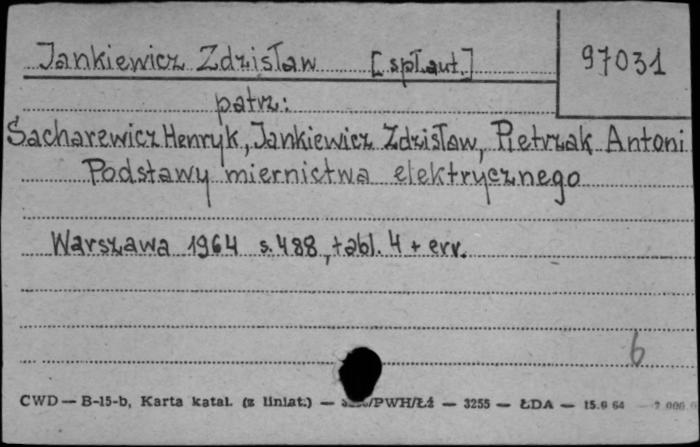 Jankiewicz Zdzisław [spł.aut.] 97031
patrz:
Sacharewicz Henryk, Jankiewicz Zdzisław, Pietrzak Antoni
Podstawy miernictwa elektrycznego
Warszawa 1964 s. 488, tabl. 4 + err.
6
CWD — B-15-b, Karta katal. (z liniat.) — /PWH/Łź — 3255 — ŁDA — 15.9 64